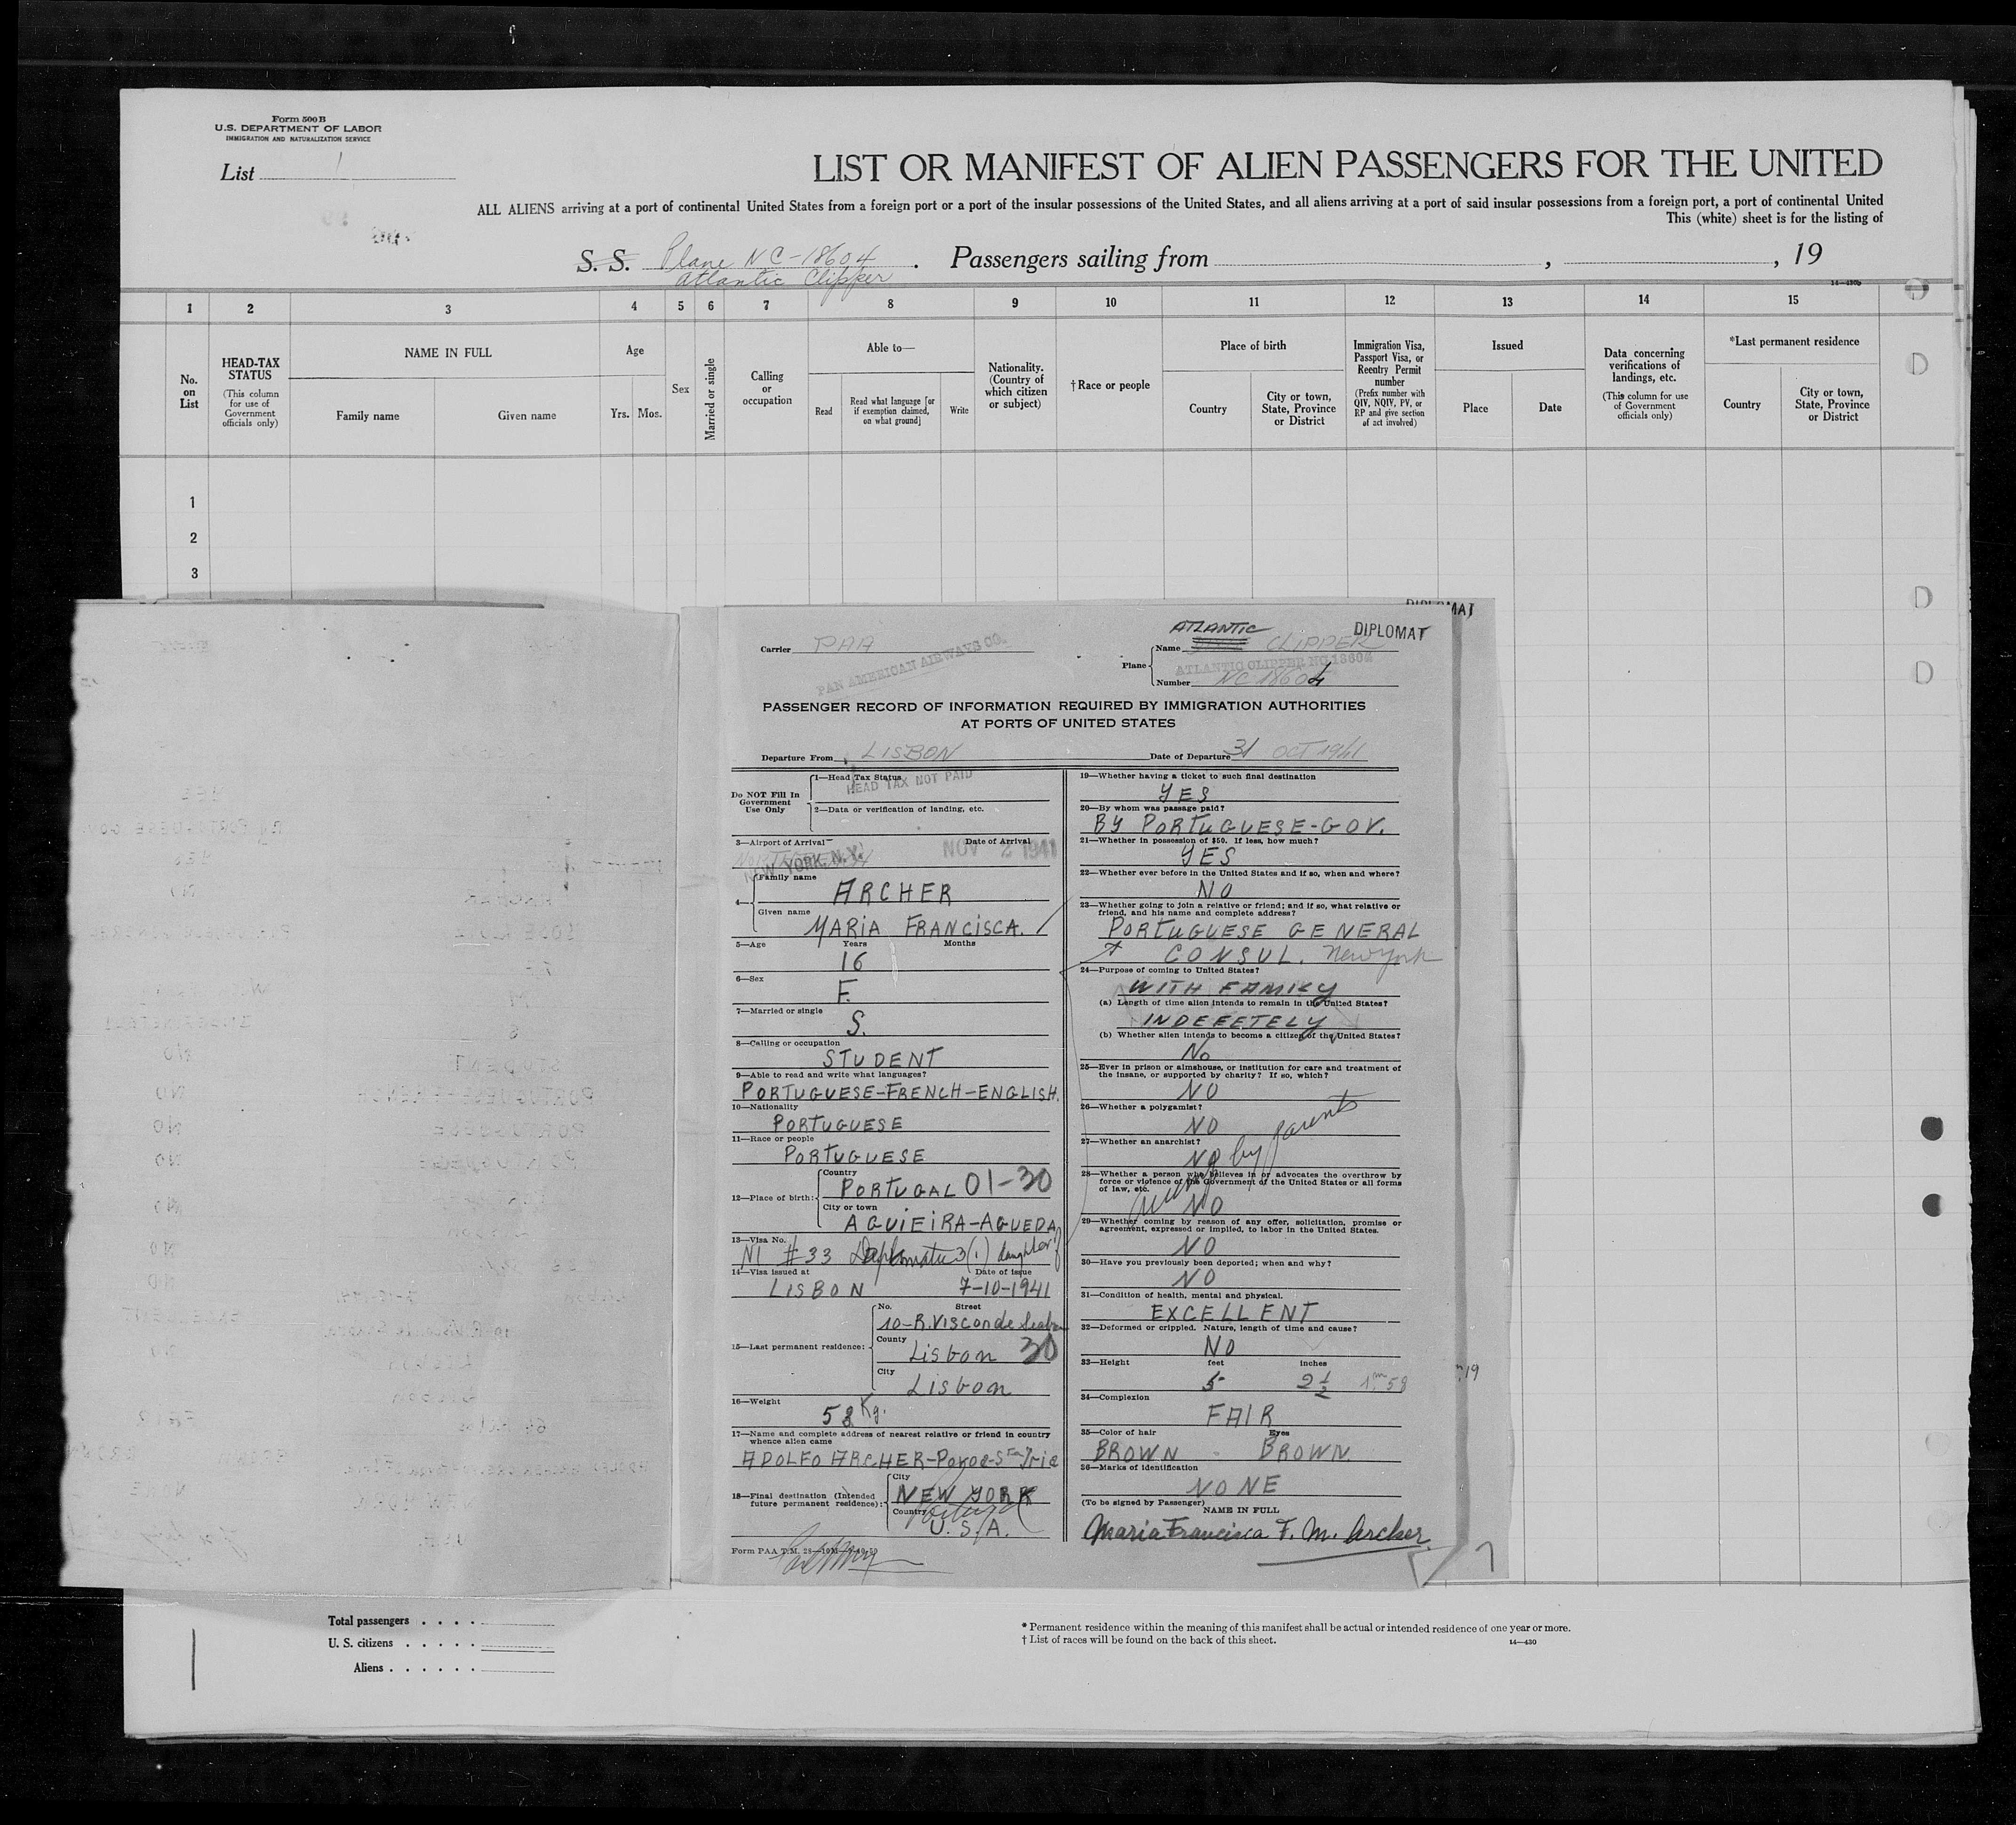 Form 500 B
U.S. DEPARTMENT OF LABOR
IMMIGRATION AND NATURALIZATION SERVICE
List 1
LIST OR MANIFEST OF ALIEN PASSENGERS FOR THE UNITED
ALL ALIENS arriving at a port of continental United States from a foreign port or a port of the insular possessions of the United States, and all aliens arriving at a port of said insular possessions from a foreign port, a port of continental United
This (white) sheet is for the listing of
S. S. Plane NC-18604
Atlantic Clipper
Passengers sailing from , , 19
14—430b
1 2 3 4 5 6 7 8 9 10 11 12 13 14 15
No. on List
HEAD-TAX STATUS
(This column for use of Government officials only)
NAME IN FULL
Family name
Given name
Age
Yrs. Mos.
Sex
Married or single
Calling or occupation
Able to—
Read
Read what language [or if exemption claimed, on what ground]
Write
Nationality. (Country of which citizen or subject)
† Race or people
Place of birth
Country
City or town, State, Province or District
Immigration Visa, Passport Visa, or Reentry Permit number
(Prefix number with QIV, NQIV, PV, or RP and give section of act involved)
Issued
Place
Date
Data concerning verifications of landings, etc.
(This column for use of Government officials only)
*Last permanent residence
Country
City or town, State, Province or District
1
2
3
DIPLOMAT
Carrier PAA
PAN AMERICAN AIRWAYS CO.
Plane
Name ATLANTIC CLIPPER
ATLANTIC CLIPPER NC 18604
Number NC 18604
PASSENGER RECORD OF INFORMATION REQUIRED BY IMMIGRATION AUTHORITIES
AT PORTS OF UNITED STATES
Departure From LISBON
Date of Departure 31 OCT 1941
Do NOT Fill In
Government
Use Only
1—Head Tax Status
HEAD TAX NOT PAID
2—Data or verification of landing, etc.
3—Airport of Arrival
Date of Arrival
NEW YORK, N.Y.
NOV 2 1941
4—
Family name
ARCHER
Given name
MARIA FRANCISCA.
5—Age Years Months
16
6—Sex
F.
7—Married or single
S.
8—Calling or occupation
STUDENT
9—Able to read and write what languages?
PORTUGUESE-FRENCH-ENGLISH.
10—Nationality
PORTUGUESE
11—Race or people
PORTUGUESE
12—Place of birth:
Country
PORTUGAL 01-30
City or town
AGUIEIRA-AGUEDA
13—Visa No.
NI #33 Diplomatic 3(1) daughter of
14—Visa issued at
Date of issue
LISBON 7-10-1941
15—Last permanent residence:
No. Street
10-R.Visconde Seabra
County
Lisbon 30
City
Lisbon
16—Weight
58 Kg.
17—Name and complete address of nearest relative or friend in country
whence alien came
ADOLFO ARCHER-
18—Final destination (Intended
future permanent residence):
City
NEW YORK
Country
Portugal
U.S.A.
Form PAA T.M.
19—Whether having a ticket to such final destination
YES
20—By whom was passage paid?
BY PORTUGUESE-GOV.
21—Whether in possession of $50. If less, how much?
YES
22—Whether ever before in the United States and if so, when and where?
NO
23—Whether going to join a relative or friend; and if so, what relative or
friend, and his name and complete address?
PORTUGUESE GENERAL
CONSUL. New York
24—Purpose of coming to United States?
WITH FAMILY
(a) Length of time alien intends to remain in the United States?
INDEFETELY
(b) Whether alien intends to become a citizen of the United States?
No
25—Ever in prison or almshouse, or institution for care and treatment of
the insane, or supported by charity? If so, which?
NO
26—Whether a polygamist?
NO
27—Whether an anarchist?
NO
by parents
28—Whether a person who believes in or advocates the overthrow by
force or violence of the Government of the United States or all forms
of law, etc.
NO
29—Whether coming by reason of any offer, solicitation, promise or
agreement, expressed or implied, to labor in the United States.
NO
30—Have you previously been deported; when and why?
NO
31—Condition of health, mental and physical.
EXCELLENT
32—Deformed or crippled. Nature, length of time and cause?
NO
33—Height feet inches
5 2½ 1m58
34—Complexion
FAIR
35—Color of hair Eyes
BROWN - BROWN.
36—Marks of identification
NONE
(To be signed by Passenger)
NAME IN FULL
Maria Francisca F. M. Archer
, 19
Total passengers . . . .
U. S. citizens . . . . .
Aliens . . . . . .
* Permanent residence within the meaning of this manifest shall be actual or intended residence of one year or more.
† List of races will be found on the back of this sheet.
14—430